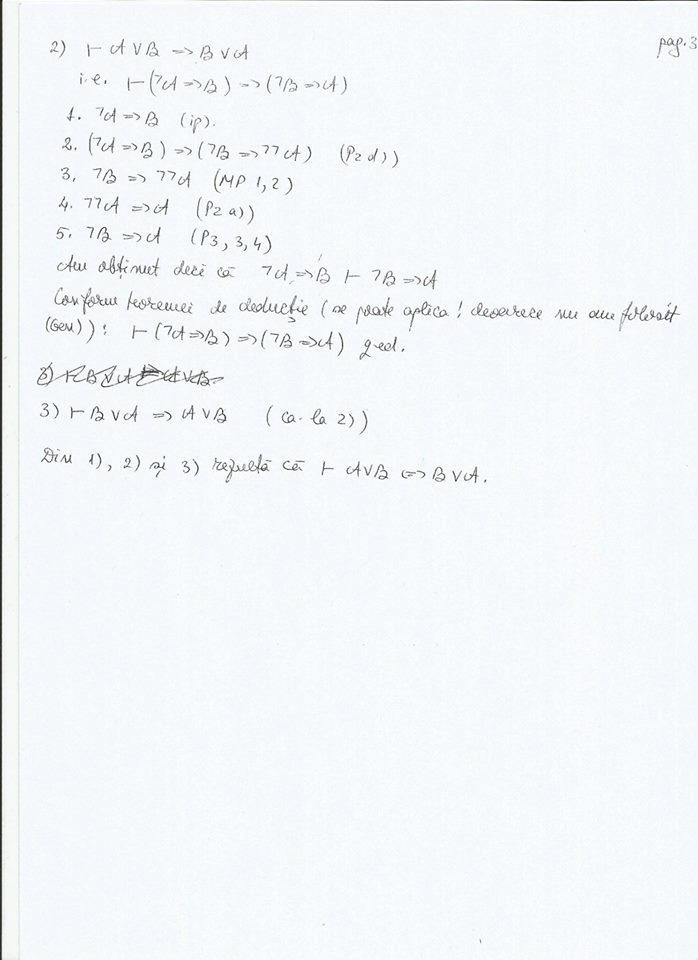 pag.3
2) ⊢ A ∨ B => B ∨ A
i.e. ⊢ (⌐A => B) => (⌐B => A)
1. ⌐A => B (ip).
2. (⌐A => B) => (⌐B => ⌐⌐A) (P2 d))
3. ⌐B => ⌐⌐A (MP 1, 2)
4. ⌐⌐A => A (P2 a))
5. ⌐B => A (P3, 3, 4)
Am obținut deci că ⌐A => B ⊢ ⌐B => A
Conform teoremei de deducție (se poate aplica! deoarece nu am folosit
(Gen)): ⊢ (⌐A => B) => (⌐B => A) qed.
3) ⊢ B ∨ A => A ∨ B (ca la 2))
Din 1), 2) și 3) rezultă că ⊢ A ∨ B <=> B ∨ A.